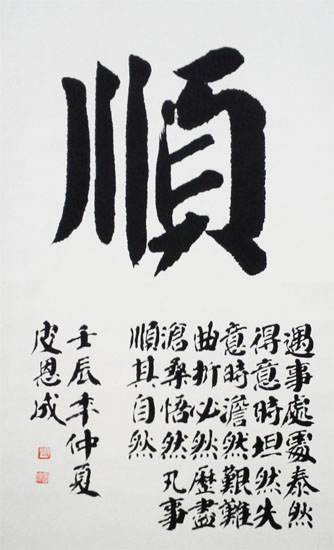 順
遇事處處泰然
得意時坦然失
意時澹然艱難
曲折必然歷盡
滄桑悟然凡事
順其自然
壬辰年仲夏
皮恩成